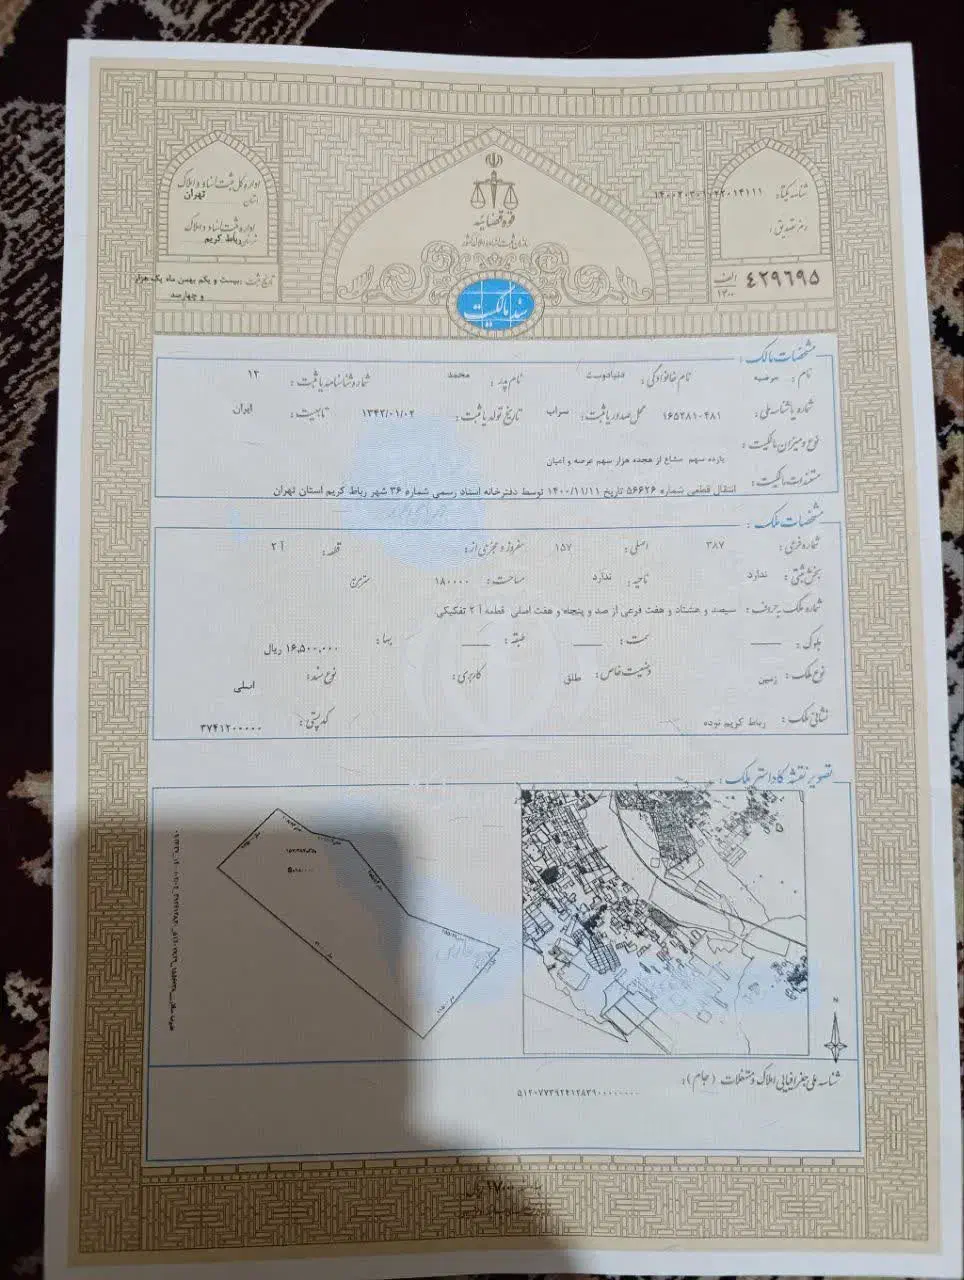 اداره کل ثبت اسناد و املاک
استان تهران
اداره ثبت اسناد و املاک
شهرستان رباط کریم
تاریخ ثبت : بیست و یکم بهمن ماه یک هزار
و چهارصد
قوه قضائیه
سازمان ثبت اسناد و املاک کشور
سند مالکیت
شناسه یکتا:
رمز تصدیق :
۴۲۹۶۹۵ الف
۱۳۰۰
مشخصات مالک :
نام : مرضیه نام خانوادگی : دنیادوست نام پدر : محمد شماره شناسنامه یا ثبت : ۱۳
شماره یا شناسه ملی : ۱۶۵۲۸۱۰۴۸۱ محل صدور یا ثبت : سراب تاریخ تولد یا ثبت : ۱۳۴۲/۰۱/۰۴ تابعیت : ایران
نوع و میزان مالکیت :
یازده سهم مشاع از هجده هزار سهم عرصه و اعیان
مستندات مالکیت : انتقال قطعی شماره ۵۶۶۲۶ تاریخ ۱۴۰۰/۱۱/۱۱ توسط دفترخانه اسناد رسمی شماره ۳۶ شهر رباط کریم استان تهران
مشخصات ملک :
شماره فرعی : ۳۸۷ اصلی : ۱۵۷ مفروز و مجزی از : قطعه : آ ۲
بخش ثبتی : ندارد ناحیه : ندارد مساحت : ۱۸۰۰۰۰ مترمربع
شماره ملک به حروف : سیصد و هشتاد و هفت فرعی از صد و پنجاه و هفت اصلی قطعه آ ۲ تفکیکی
بلوک : سمت : طبقه : بها : ۱۶,۵۰۰,۰۰۰ ریال
نوع ملک : زمین وضعیت خاص : طلق کاربری : نوع سند : اصلی
نشانی ملک : رباط کریم نوده کدپستی : ۳۷۴۱۲۰۰۰۰۰
تصویر نقشه کاداستر ملک :
N
شناسه ملی جغرافیایی املاک و مستغلات ( جام ) :